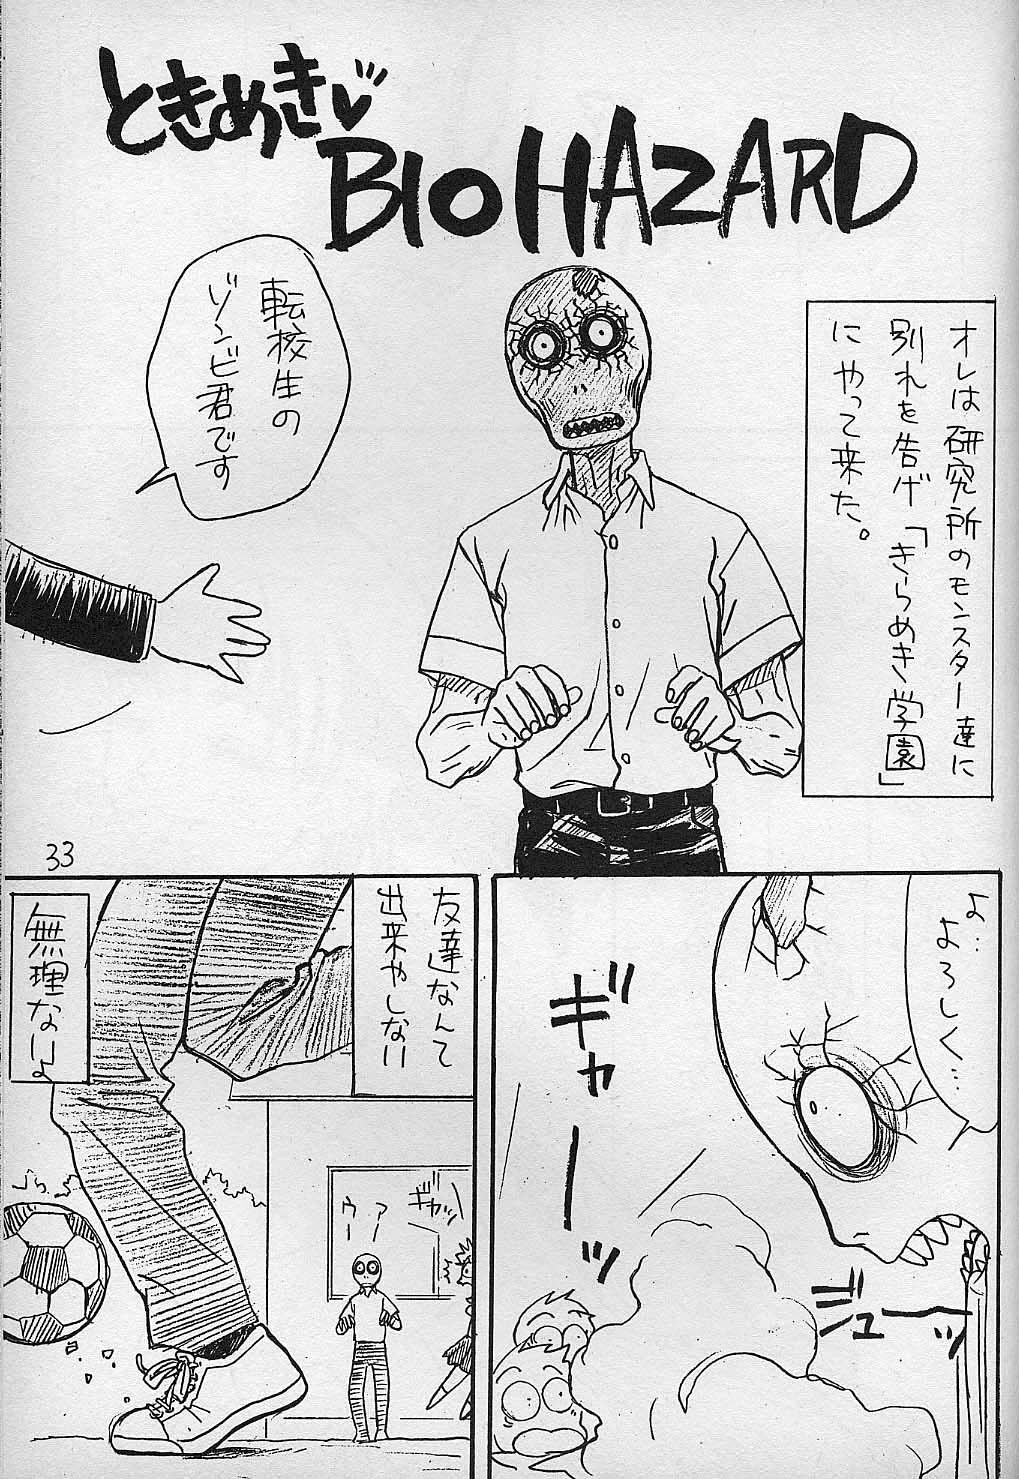 ときめき♥
BIOHAZARD
オレは研究所のモンスター達に
別れを告げ「きらめき学園」
にやって来た。
転校生の
ゾンビ君です
33
よ…
よろしく…
ギャーッ
ジューッ
友達なんて
出来やしない
無理ないよ
ギャッ
アー
ウー